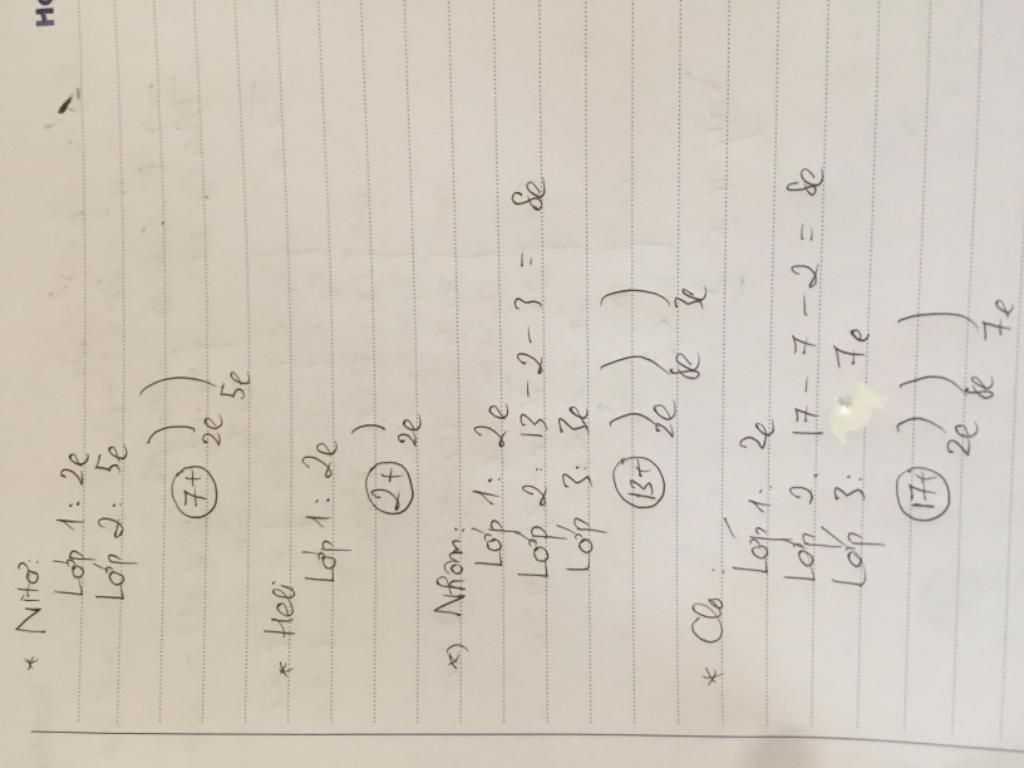 * Nitơ:
Lớp 1: 2e
Lớp 2: 5e
7+ ) )
2e 5e
* Heli
Lớp 1: 2e
2+ )
2e
*) Nhôm:
Lớp 1: 2e
Lớp 2: 13 - 2 - 3 = 8e
Lớp 3: 3e
13+ ) ) )
2e 8e 3e
* Clo:
Lớp 1: 2e
Lớp 2. 17 - 7 - 2 = 8e
Lớp 3: 7e
17+ ) ) )
2e 8e 7e